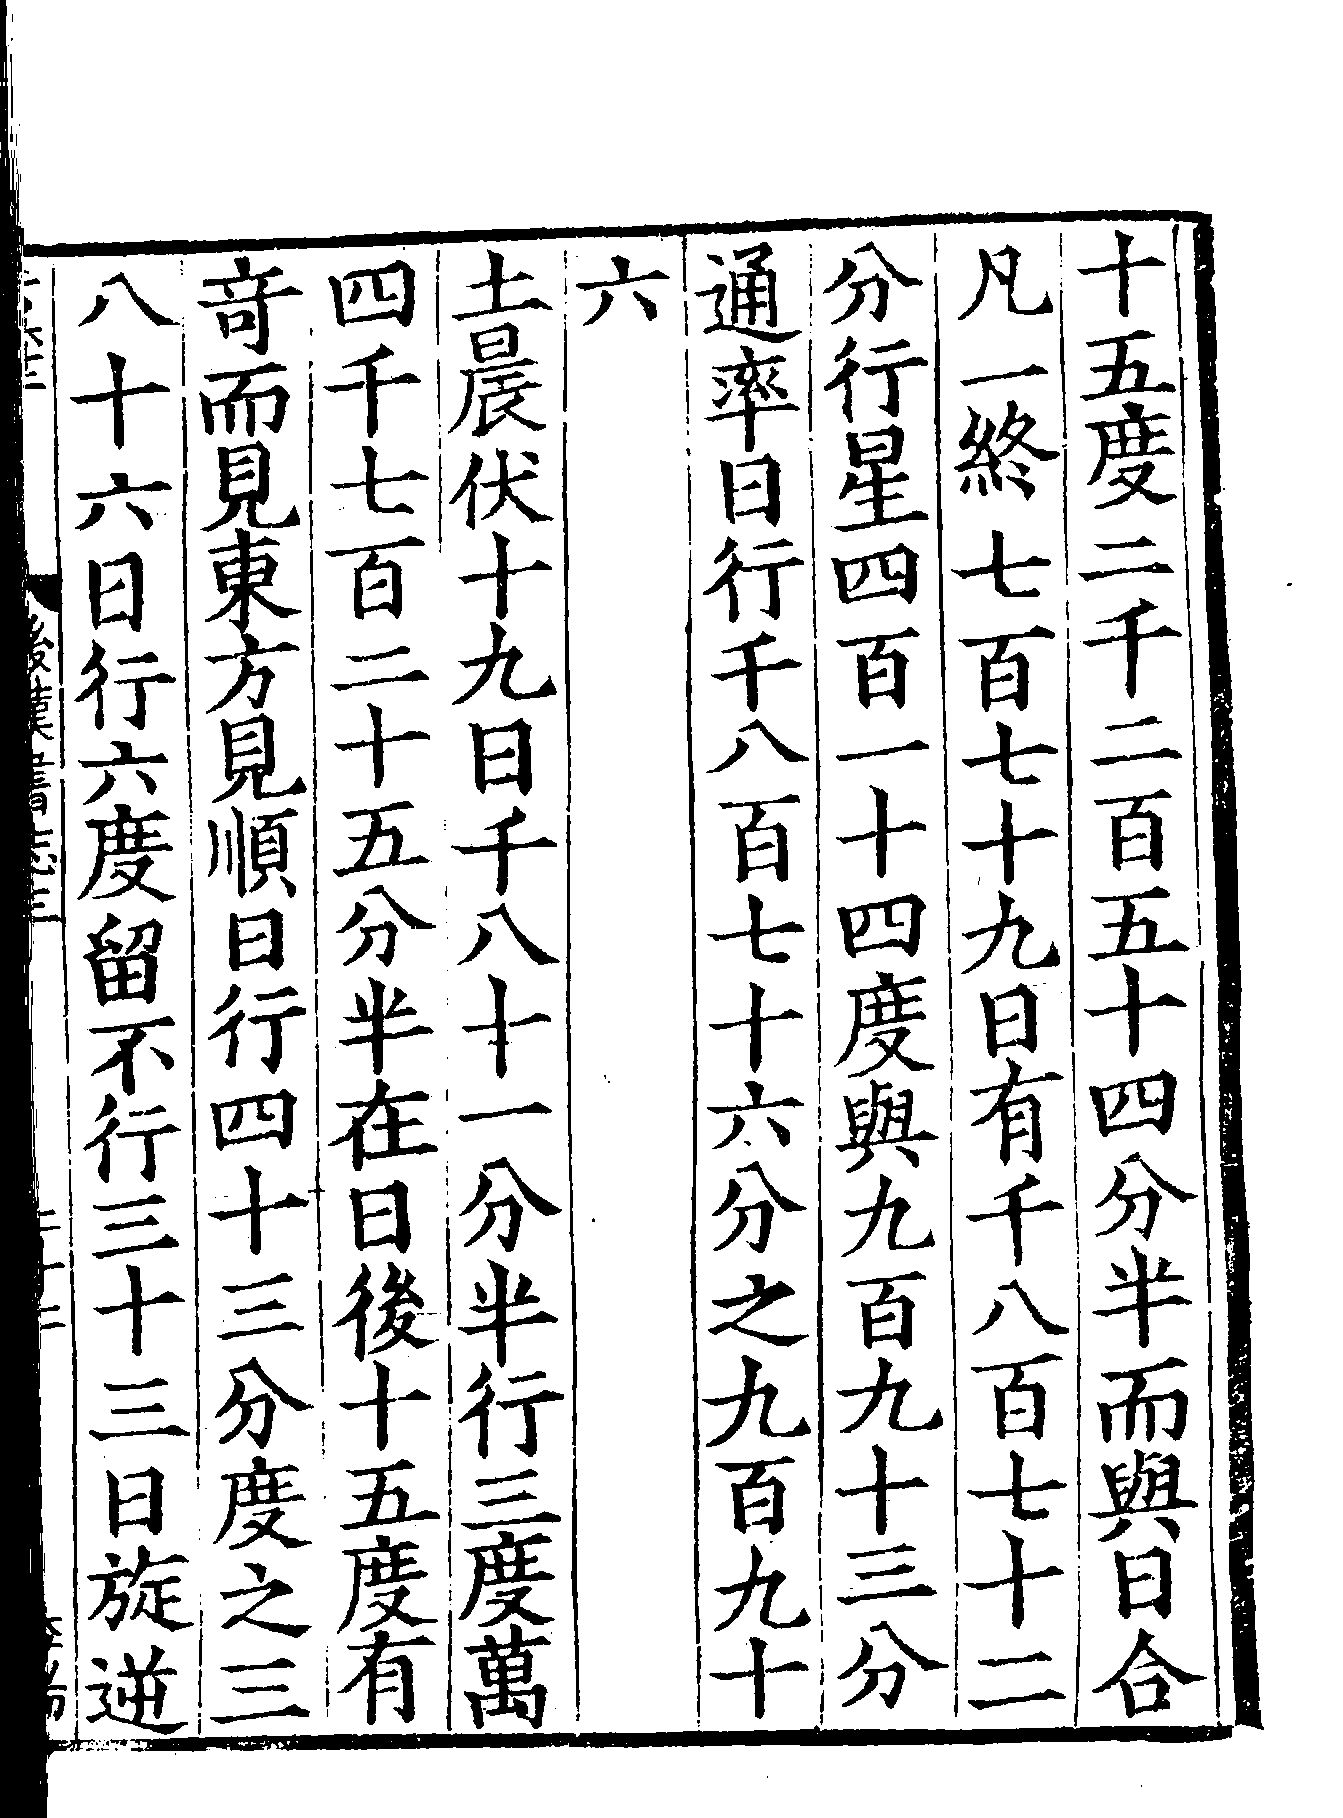 十五度二千二百五十四分半而與日合
凡一終七百七十九日有千八百七十二
分行星四百一十四度與九百九十三分
通率日行千八百七十六分之九百九十
六
土晨伏十九日千八十一分半行三度萬
四千七百二十五分半在日後十五度有
竒而見東方見順日行四十三分度之三
八十六日行六度留不行三十三日旋逆
後漢書志三